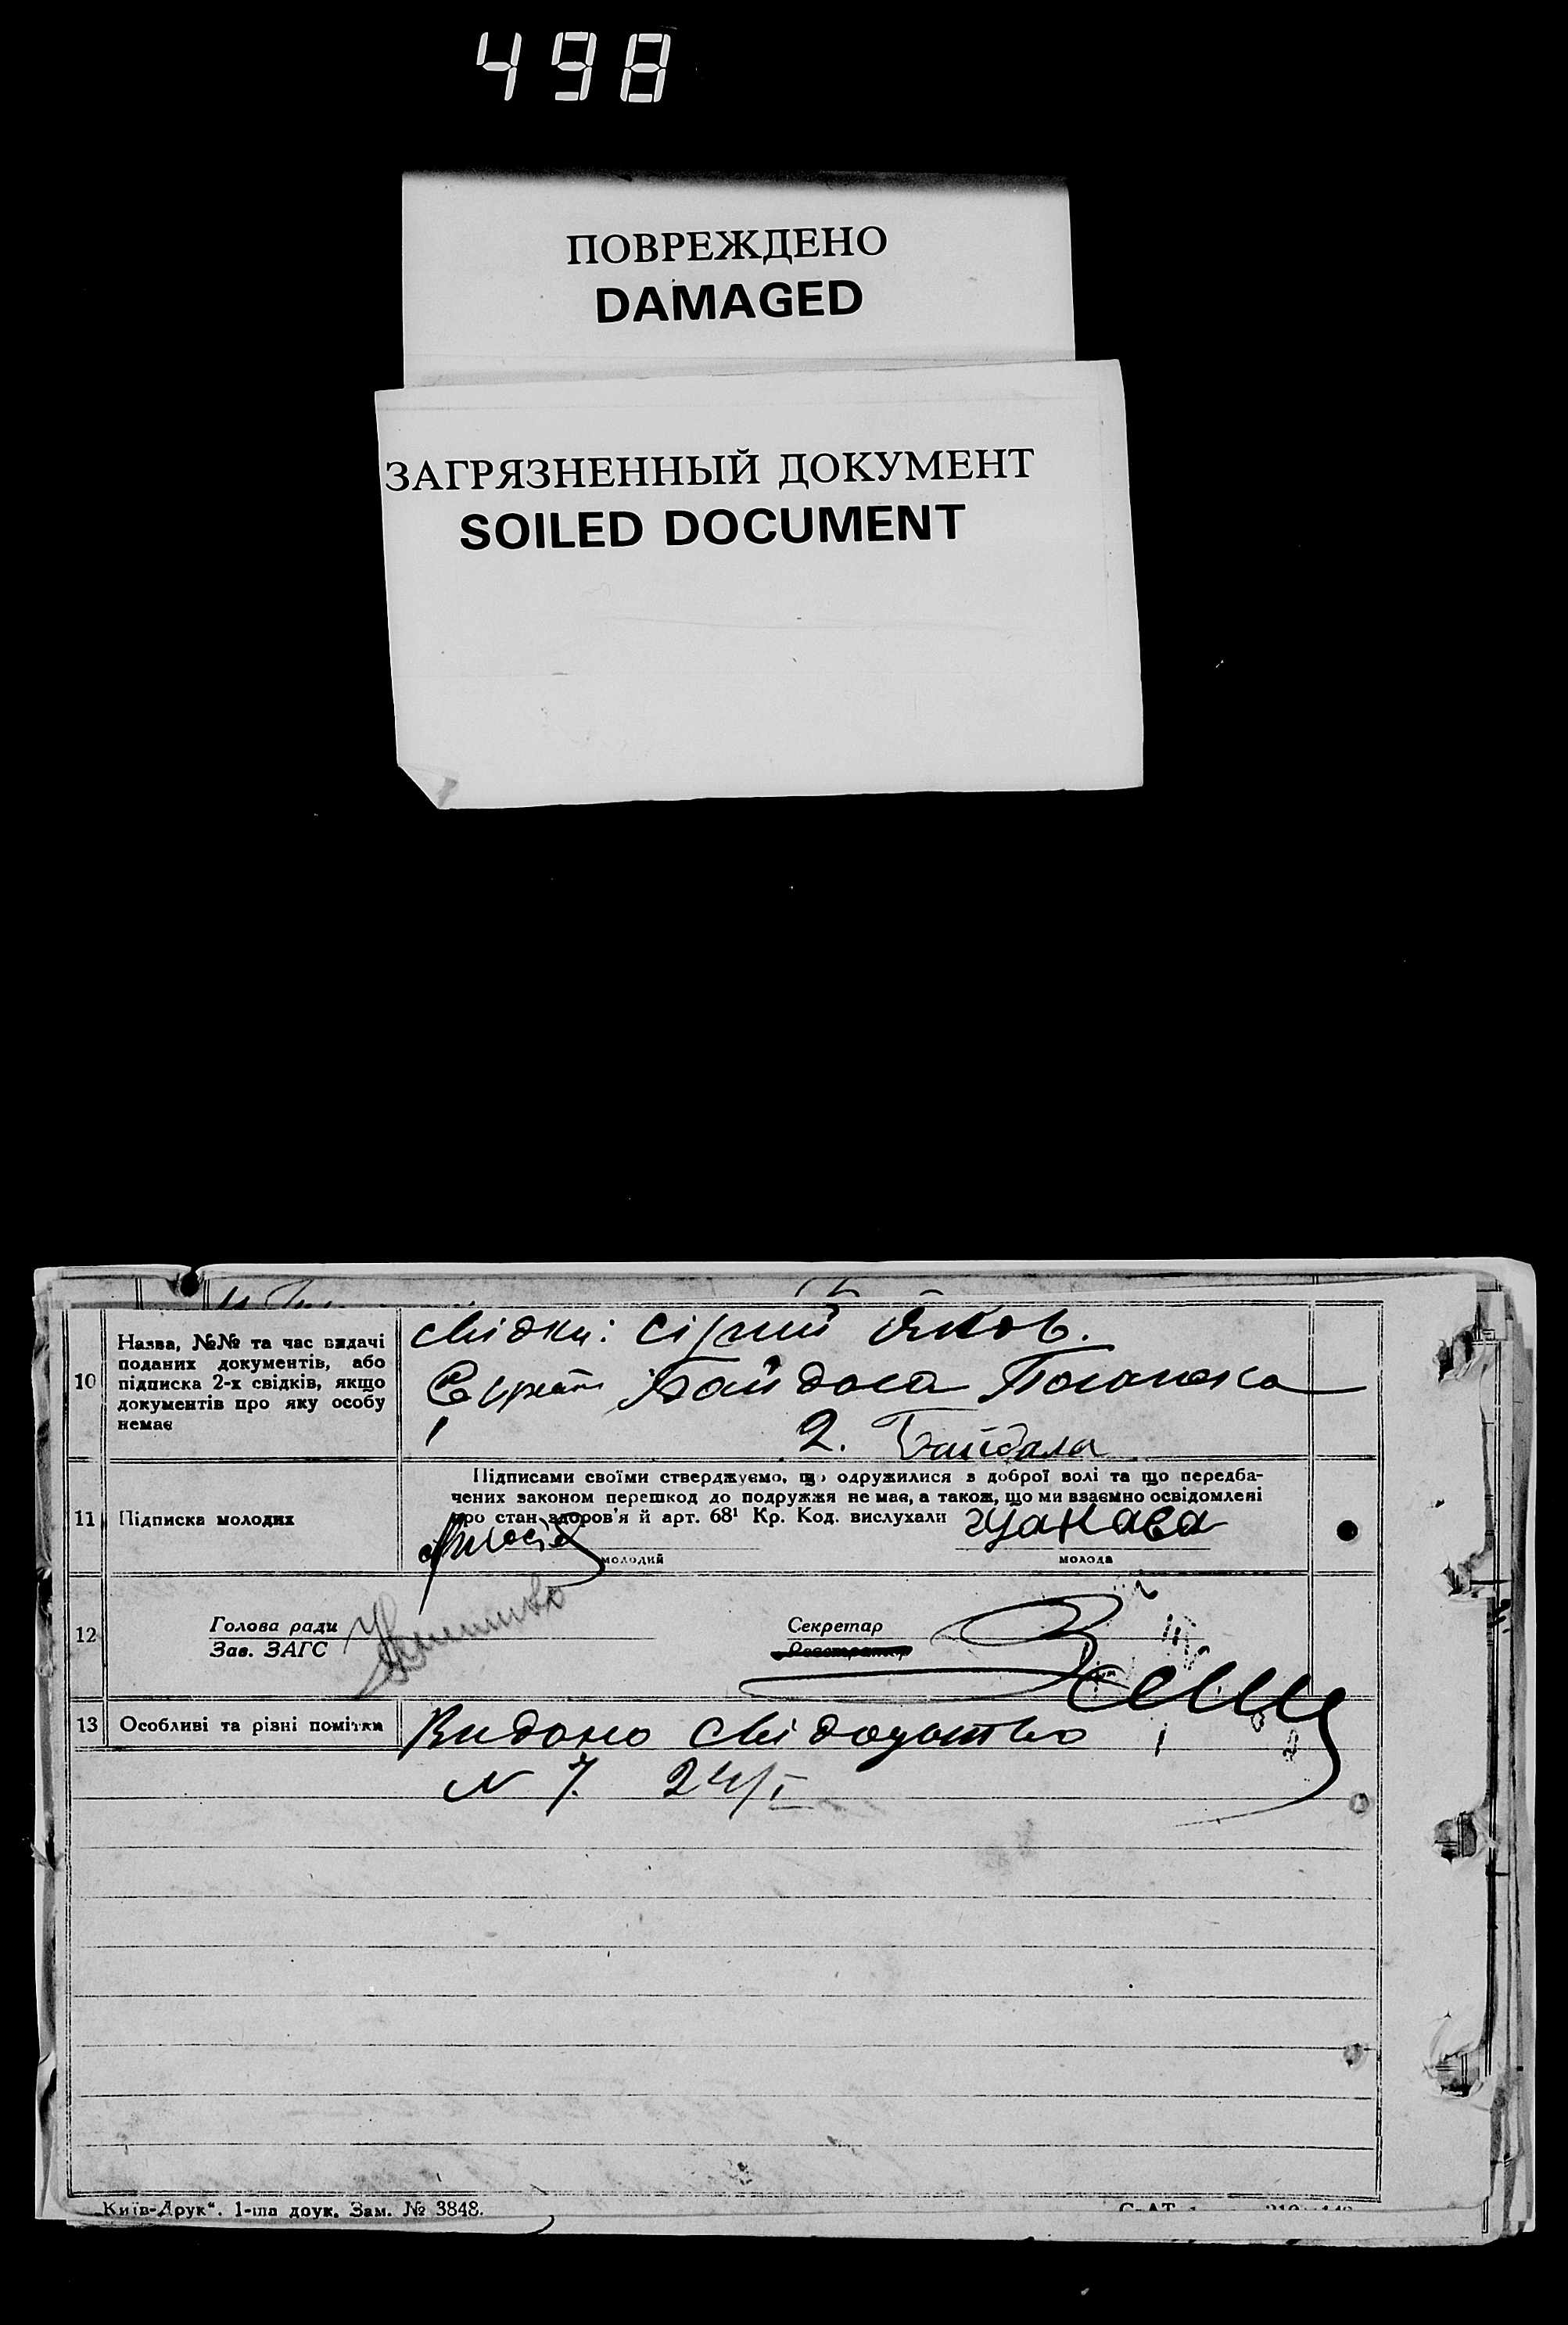 498
ПОВРЕЖДЕНО
DAMAGED
ЗАГРЯЗНЕННЫЙ ДОКУМЕНТ
SOILED DOCUMENT
10
Назва, №№ та час видачі
поданих документів, або
підписка 2-х свідків, якщо
документів про яку особу
немає
свідки: Сірий Яков.
Байдала
2. Байдала
11
Підписка молодих
Підписами своїми стверджуємо, що одружилися з доброї волі та що передба-
чених законом перешкод до подружжя не має, а також, що ми взаємно освідомлені
про стан здоров'я й арт. 68¹ Кр. Код. вислухали
молодий
молода
12
Голова ради
Зав. ЗАГС
Секретар
Реєстратор
13
Особливі та різні помітки
Видано свідоцтво
N 7. 24/I
„Київ-Друк“. 1-ша друк. Зам. № 3848.